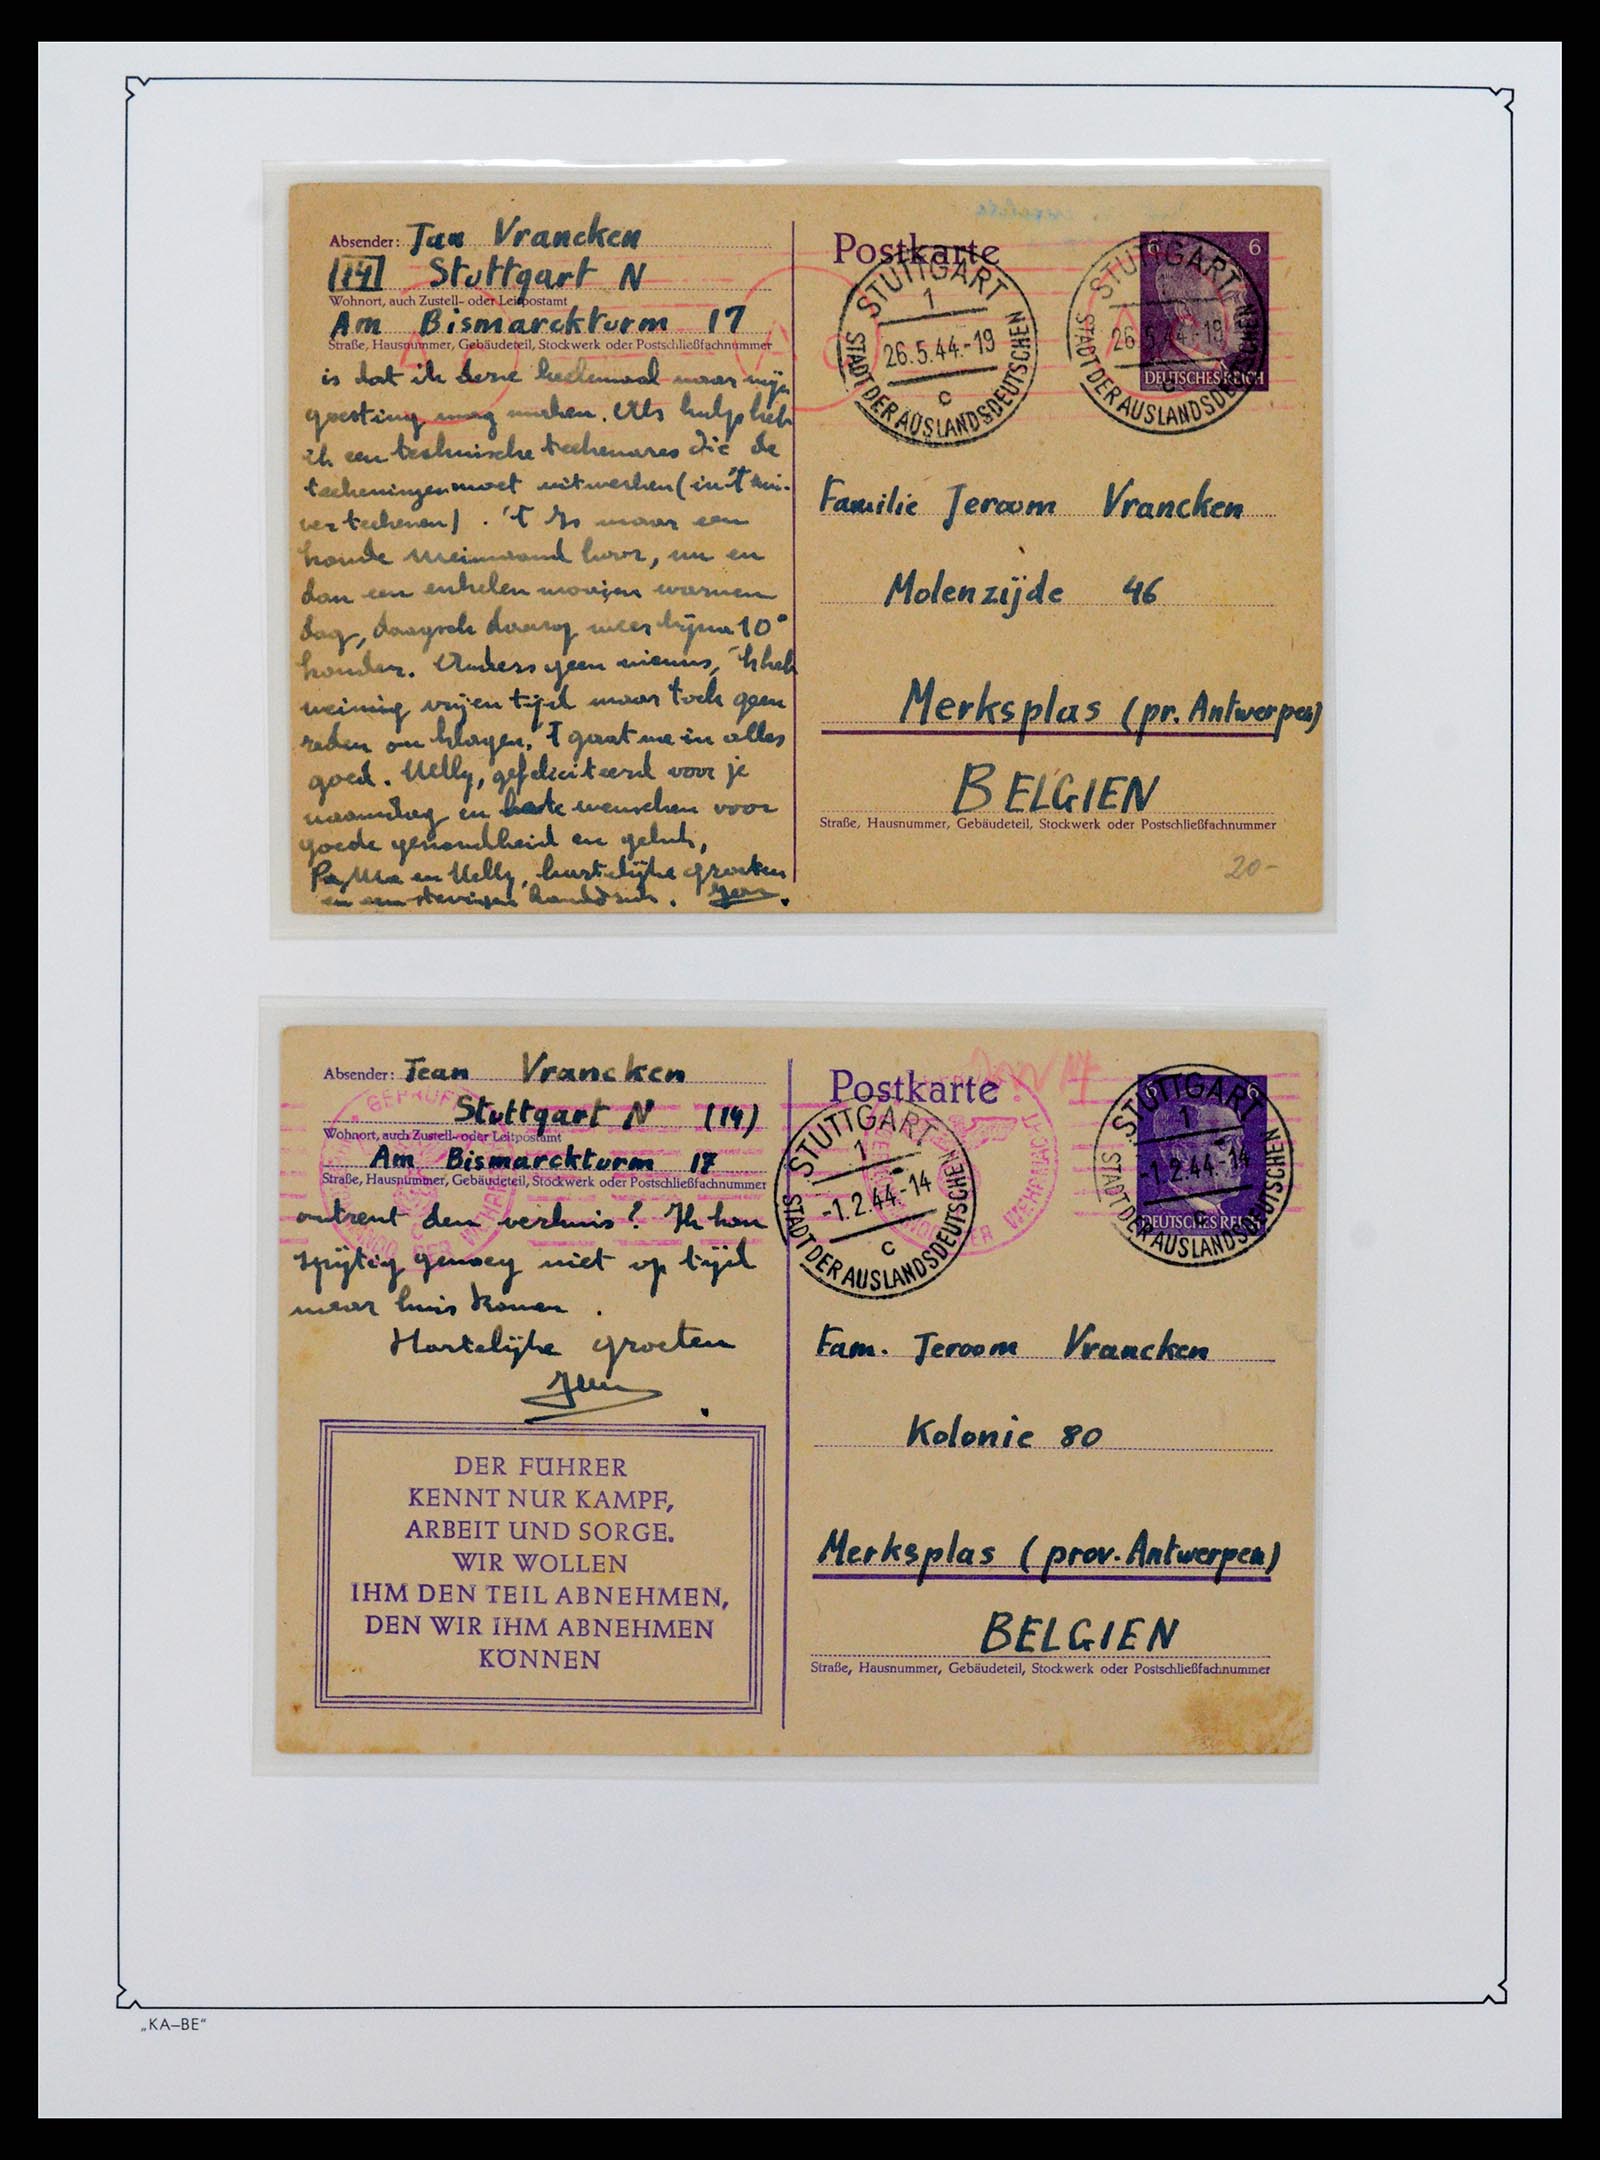 Absender: Jan Vrancken
(14) Stuttgart N
Wohnort, auch Zustell- oder Leitpostamt
Am Bismarckturm 17
Straße, Hausnummer, Gebäudeteil, Stockwerk oder Postschließfachnummer
is dat ik deze heelemaal naar mijn
goesting mag maken. Als hulp heb
ik een technische teekenares die de
teekeningen moet uitwerken (in 't
teekenen). 't Is maar een
koude hoor, nu en
dan een enkelen mooien warmen
dag, daags daarop weer bijna 10°
kouder. Anders geen nieuws, 'k heb
weinig vrijen tijd maar toch geen
reden om klagen. T gaat me in alles
goed. Nelly, gefeliciteerd voor je
naamdag en beste wenschen voor
goede gezondheid en geluk,
Pa, Ma en Nelly, hartelijke groeten
en een stevigen handdruk. Jan.
Postkarte
STUTTGART
1
26.5.44.-19
c
STADT DER AUSLANDSDEUTSCHEN
6 6
DEUTSCHES REICH
STUTTGART
1
26.5.44.-19
c
STADT DER AUSLANDSDEUTSCHEN
Familie Jeroom Vrancken
Molenzijde 46
Merksplas (pr. Antwerpen)
BELGIEN
Straße, Hausnummer, Gebäudeteil, Stockwerk oder Postschließfachnummer
20-
Absender: Jean Vrancken
Stuttgart N (14)
Wohnort, auch Zustell- oder Leitpostamt
Am Bismarckturm 17
Straße, Hausnummer, Gebäudeteil, Stockwerk oder Postschließfachnummer
omtrent den verhuis? Ik kon
spijtig genoeg niet op tijd
naar huis komen.
Hartelijke groeten
Jean
DER FÜHRER
KENNT NUR KAMPF,
ARBEIT UND SORGE.
WIR WOLLEN
IHM DEN TEIL ABNEHMEN,
DEN WIR IHM ABNEHMEN
KÖNNEN
Postkarte
STUTTGART
1
-1.2.44.-14
c
STADT DER AUSLANDSDEUTSCHEN
6 6
DEUTSCHES REICH
STUTTGART
1
-1.2.44.-14
c
STADT DER AUSLANDSDEUTSCHEN
GEPRÜFT
DER WEHRMACHT
Fam. Jeroom Vrancken
Kolonie 80
Merksplas (prov. Antwerpen)
BELGIEN
Straße, Hausnummer, Gebäudeteil, Stockwerk oder Postschließfachnummer
„KA–BE“